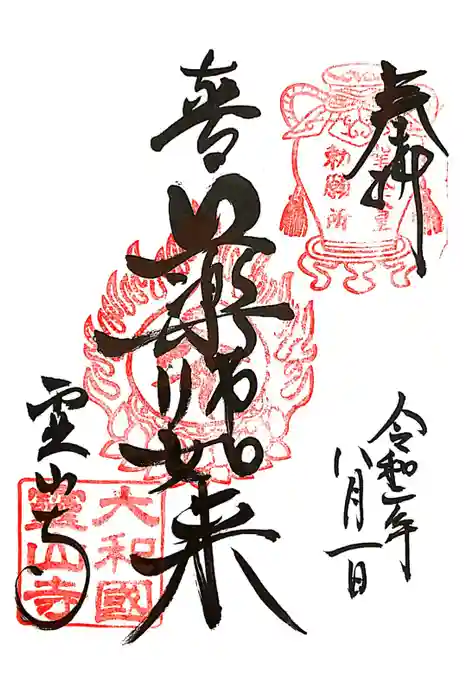 奉拝
勅願所
令和二年
八月一日
薬師如来
霊山寺
大和國
靈山寺